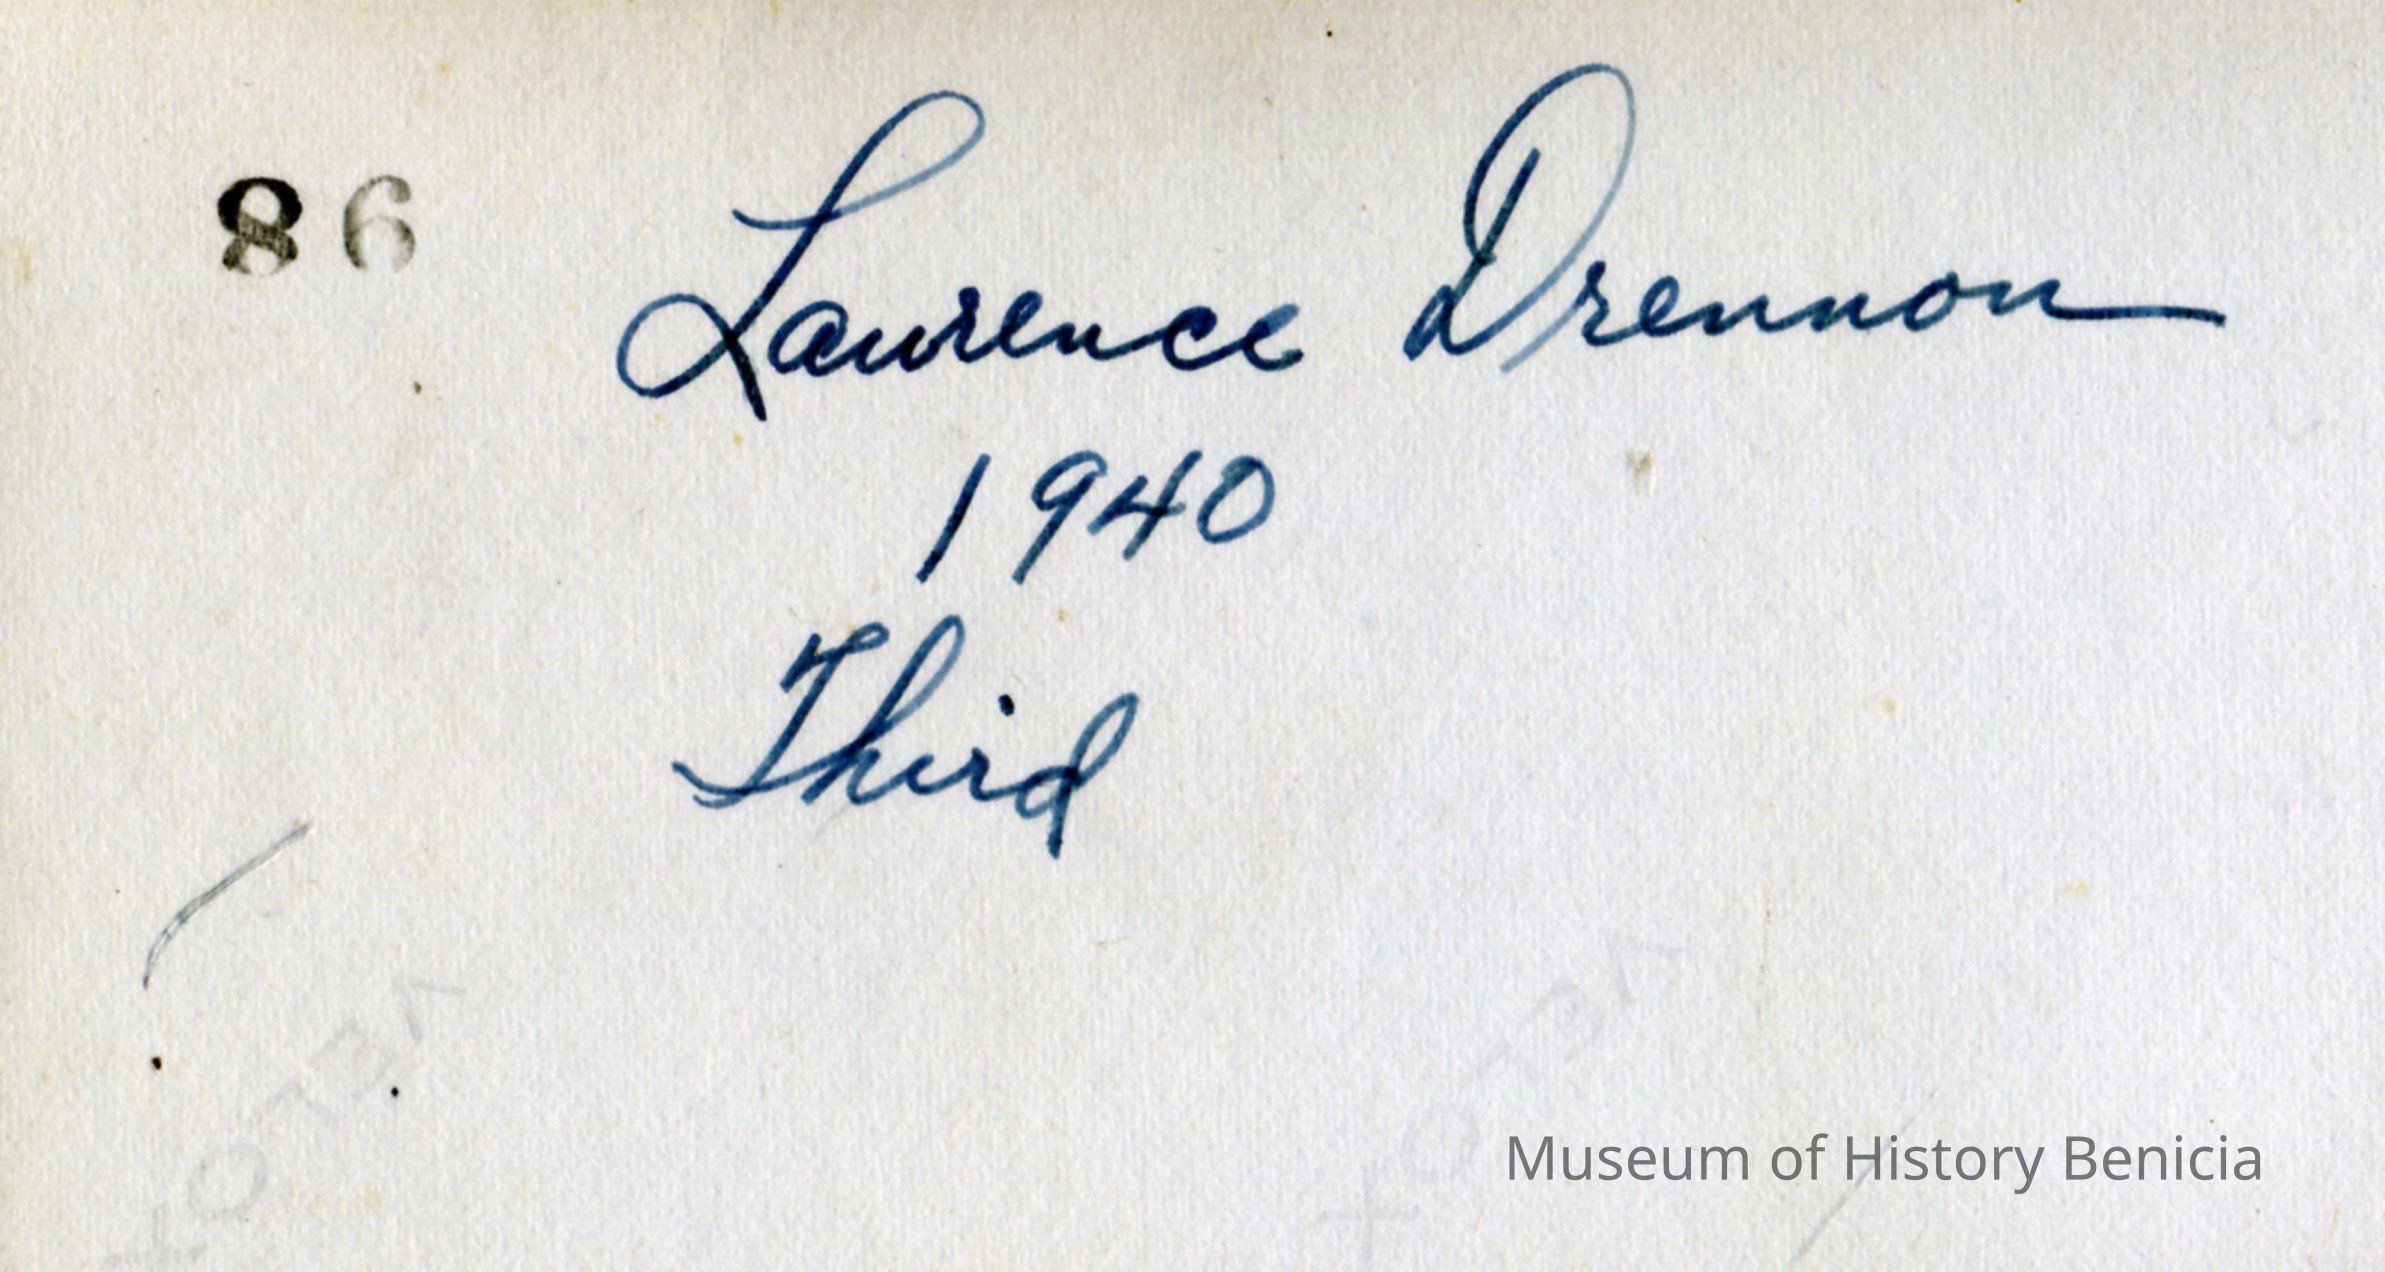 86
Laurence Drennon
1940
Third
VELOX
VELOX
Museum of History Benicia